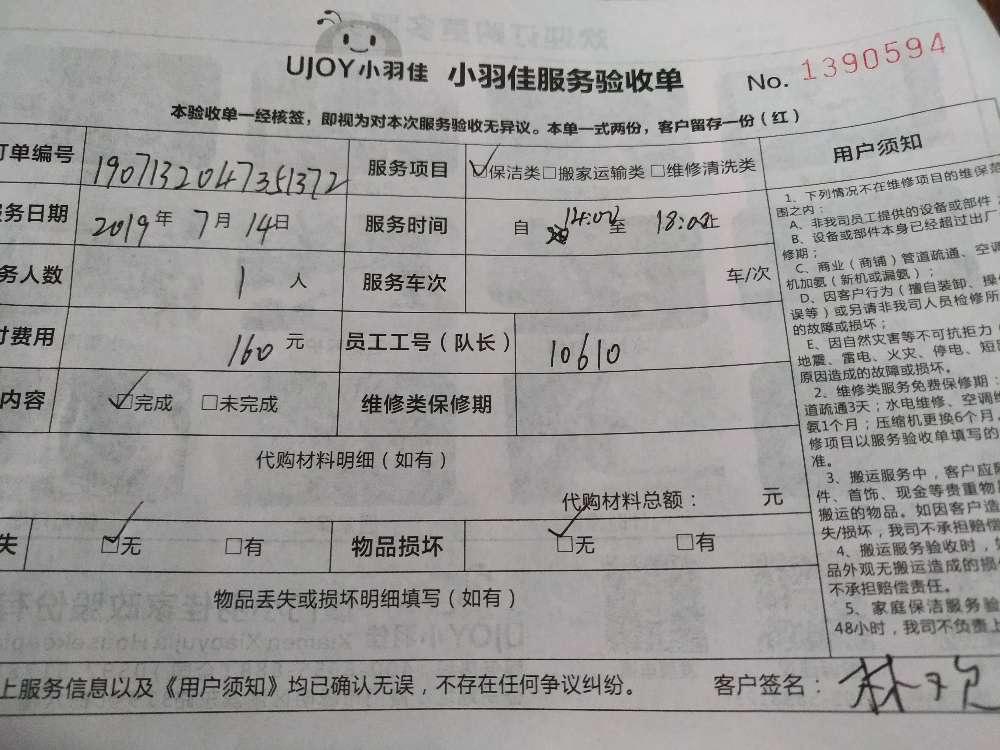 UJOY小羽佳 小羽佳服务验收单 No. 1390594
本验收单一经核签，即视为对本次服务验收无异议。本单一式两份，客户留存一份（红）
订单编号 1907132047351372 服务项目 保洁类 搬家运输类 维修清洗类
服务日期 2019年 7月 14日 服务时间 自 14:00 至 18:00止
务人数 1 人 服务车次 车/次
付费用 160 元 员工工号（队长） 10610
内容 完成 未完成 维修类保修期
代购材料明细（如有）
代购材料总额： 元
失 无 有 物品损坏 无 有
物品丢失或损坏明细填写（如有）
上服务信息以及《用户须知》均已确认无误，不存在任何争议纠纷。 客户签名：
用户须知
1、下列情况不在维修项目的维保范
围之内：
A、非我司员工提供的设备或部件
B、设备或部件本身已经超过出厂
修期；
C、商业（商铺）管道疏通、空调
机加氨（新机或漏氨）；
D、因客户行为（擅自装卸、操
误等）或另请非我司人员检修所
的故障或损坏；
E、因自然灾害等不可抗拒力
地震、雷电、火灾、停电、短
原因造成的故障或损坏。
2、维修类服务免费保修期：
道疏通3天；水电维修、空调
氨1个月；压缩机更换6个月，
修项目以服务验收单填写的
准。
3、搬运服务中，客户应
件、首饰、现金等贵重物
搬运的物品。如因客户造
失/损坏，我司不承担赔偿
4、搬运服务验收时，
品外观无搬运造成的损
不承担赔偿责任。
5、家庭保洁服务验
48小时，我司不负责上